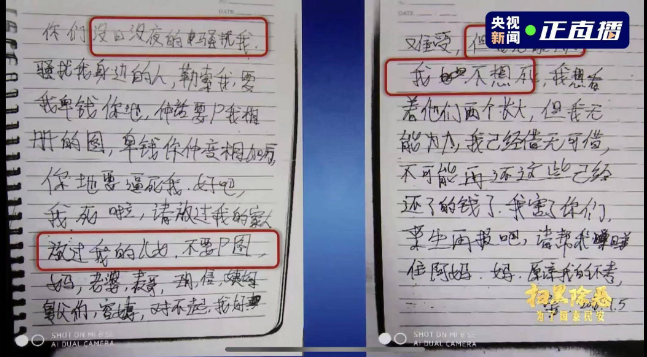 央视新闻 正直播
你们没日没夜的骚扰我.
骚扰我身边的人,勒索我,要
我卑钱你地,仲话要P我相
册的图,卑钱你仲变相加
你地要逼死我.好吧,
我死啦,请放过我的家人
放过我的 不要P图,
妈,老婆,表哥,
对不起,我好
DATE
又难受,但
我 不想死,我想看
着他们两个长大,但我无
能为力,我已经借无可借,
不可能再还这些已经
还了的钱了.我害了你们,
来生再报吧,请帮我
住阿妈.妈,原谅我的不孝,
扫黑除恶
为了国泰民安
SHOT ON MI 8 SE
AI DUAL CAMERA
SHOT ON MI 8 SE
AI DUAL CAMERA